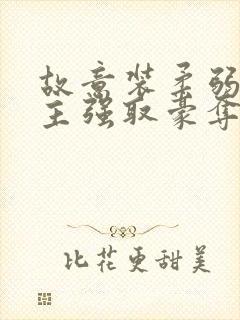 故意装柔弱
主强取豪夺
比花更甜美